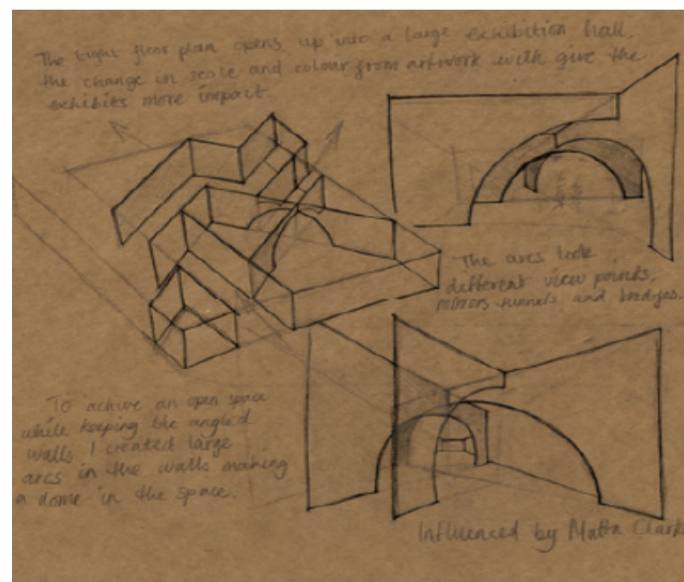 The tight floor plan opens up into a large exhibition hall,
the change in scale and colour from artwork with give the
exhibits more impact.
The arcs look
different view points,
mirrors tunnels and bridges.
To achive an open space
while keeping the angled
walls I created large
arcs in the walls making
a dome in the space.
Influenced by Matta Clark